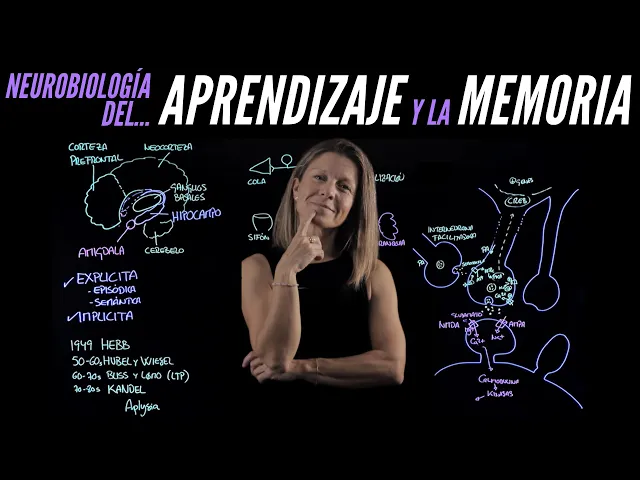 NEUROBIOLOGÍA
DEL... APRENDIZAJE Y LA MEMORIA
CORTEZA
PREFRONTAL
NEOCORTEZA
GANGLIOS
BASALES
HIPOCAMPO
AMIGDALA
CEREBELO
✓EXPLICITA
- EPISÓDICA
- SEMÁNTICA
✓IMPLICITA
1949 HEBB
50-60s HUBEL Y WIESEL
60-70s BLISS Y LOMO (LTP)
70-80s KANDEL
Aplysia
COLA
SIFÓN
GENES
CREB
INTERNEURONA
FACILITADORA
PA
PA
GLUTAMATO
NMDA
AMPA
Ca2+
Na+
CALMODULINA
KINASAS